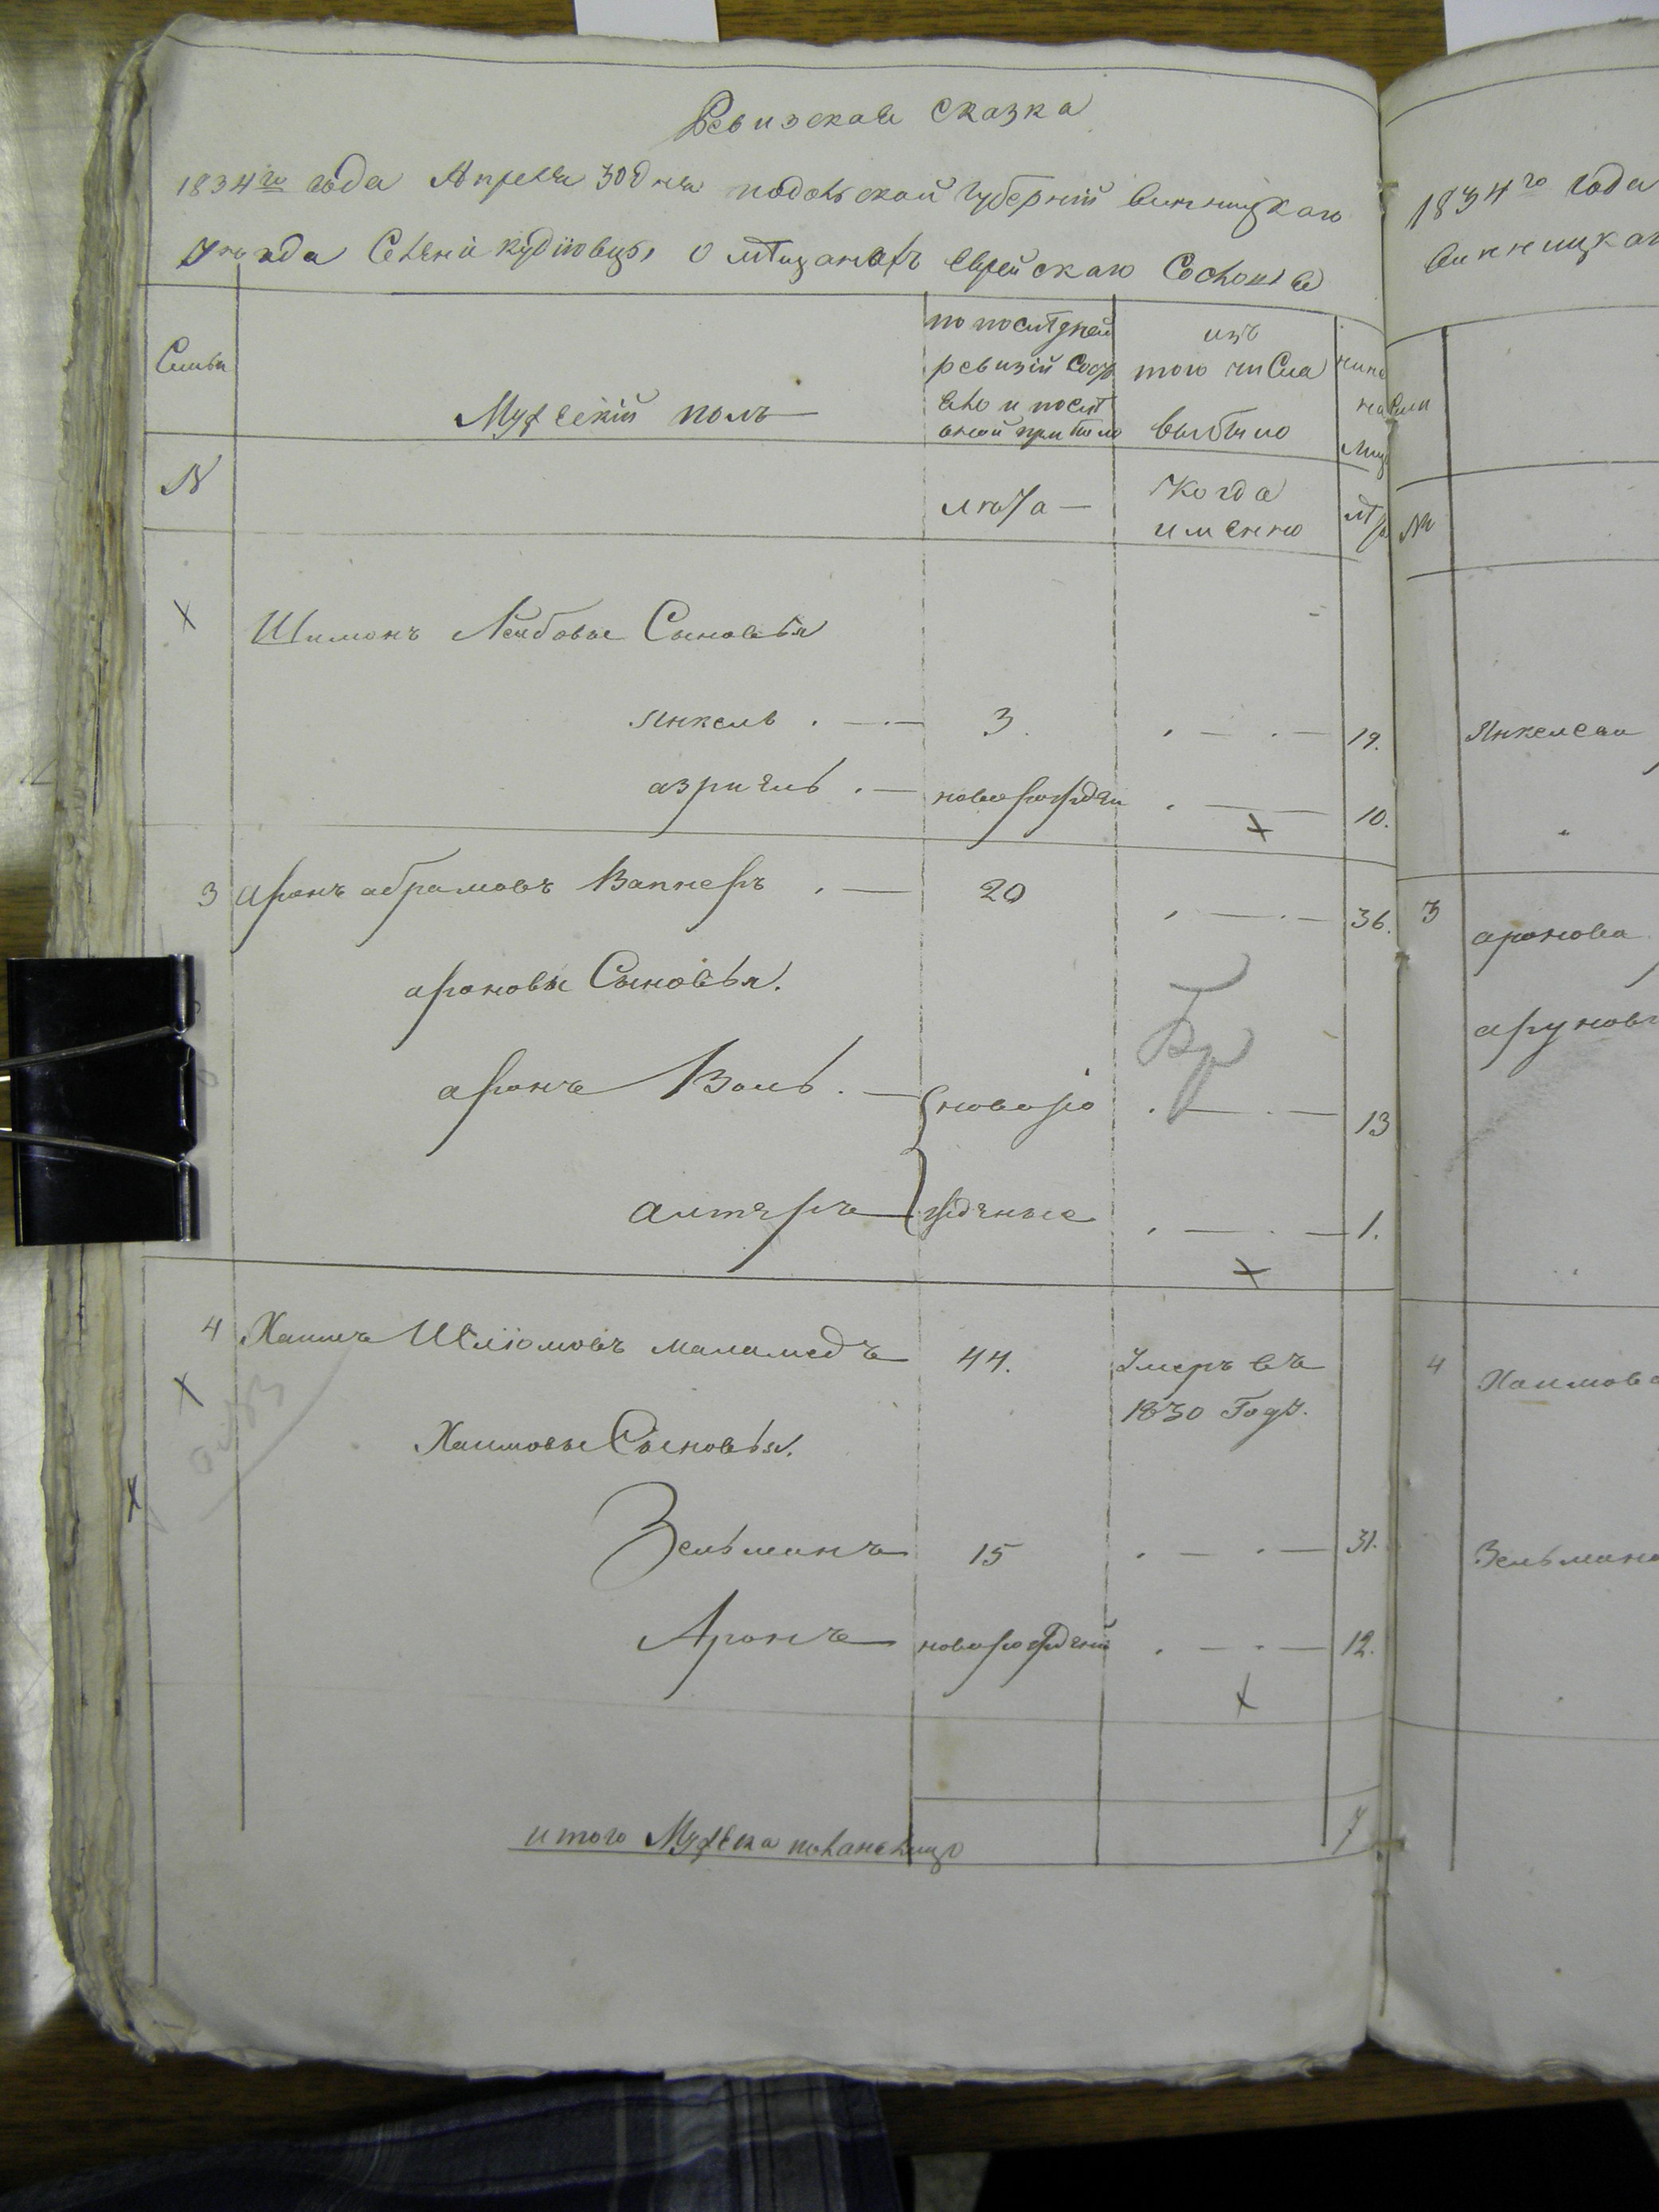 Ревизская сказка
1834го года Апреля 30 дня подольской губерний винницкаго
уезда Селений кудіовцы о мѣщанахъ еврейскаго Сословія
Семьи
Мужескій полъ
по последней
ревизій Состо
яло и послѣ
оной прибыло
изъ
того числа
выбыло
ныне
на
лицо
№
лѣта
когда
именно
лѣта
Шимонъ Лейбовые Сыновья
Янкель 3 19.
азриель новорожден 10.
3 аронъ абрамовъ Вапнеръ 20 36.
ароновы Сыновья.
аронъ Воль новоро 13
алтеръ жденные 1.
4 Хаимъ Шліомовъ маламедъ 44. Умеръ въ
1830 Году.
Хаимовы Сыновья.
Зельманъ 15 31.
Аронъ новорожденый 12.
итого Мужеска пола налицо 7
1834го года
винницкаг
№
Янкелева
3 аронова
4 Хаимова
Зельмано